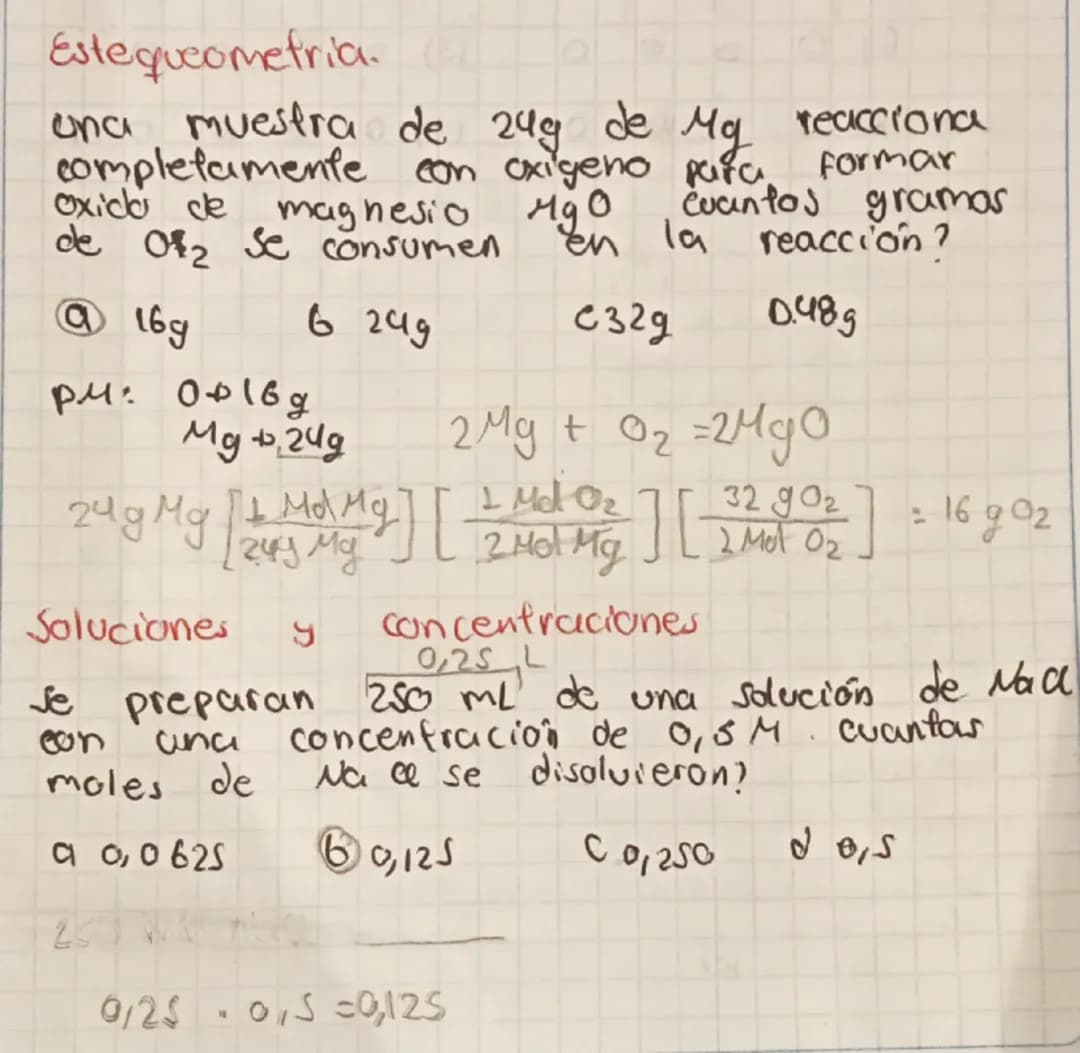 Estequeometria.
una muestra de 24g de Mg reacciona
completamente con oxigeno para formar
oxido de magnesio MgO cuantos gramos
de O2 se consumen en la reacción?
a 16g b 24g c 32g D. 48g
PM: O→16g
Mg→24g 2Mg + O2 = 2MgO
24g Mg [1 Mol Mg / 24g Mg] [1 Mol O2 / 2 Mol Mg] [32 g O2 / 1 Mol O2] = 16 g O2
Soluciones y concentraciones
0,25 L
se preparan 250 mL de una solución de NaCl
con una concentración de 0,5 M. cuantas
moles de NaCl se disolvieron?
a 0,0625 b 0,125 c 0,250 d 0,5
0,25 . 0,5 = 0,125